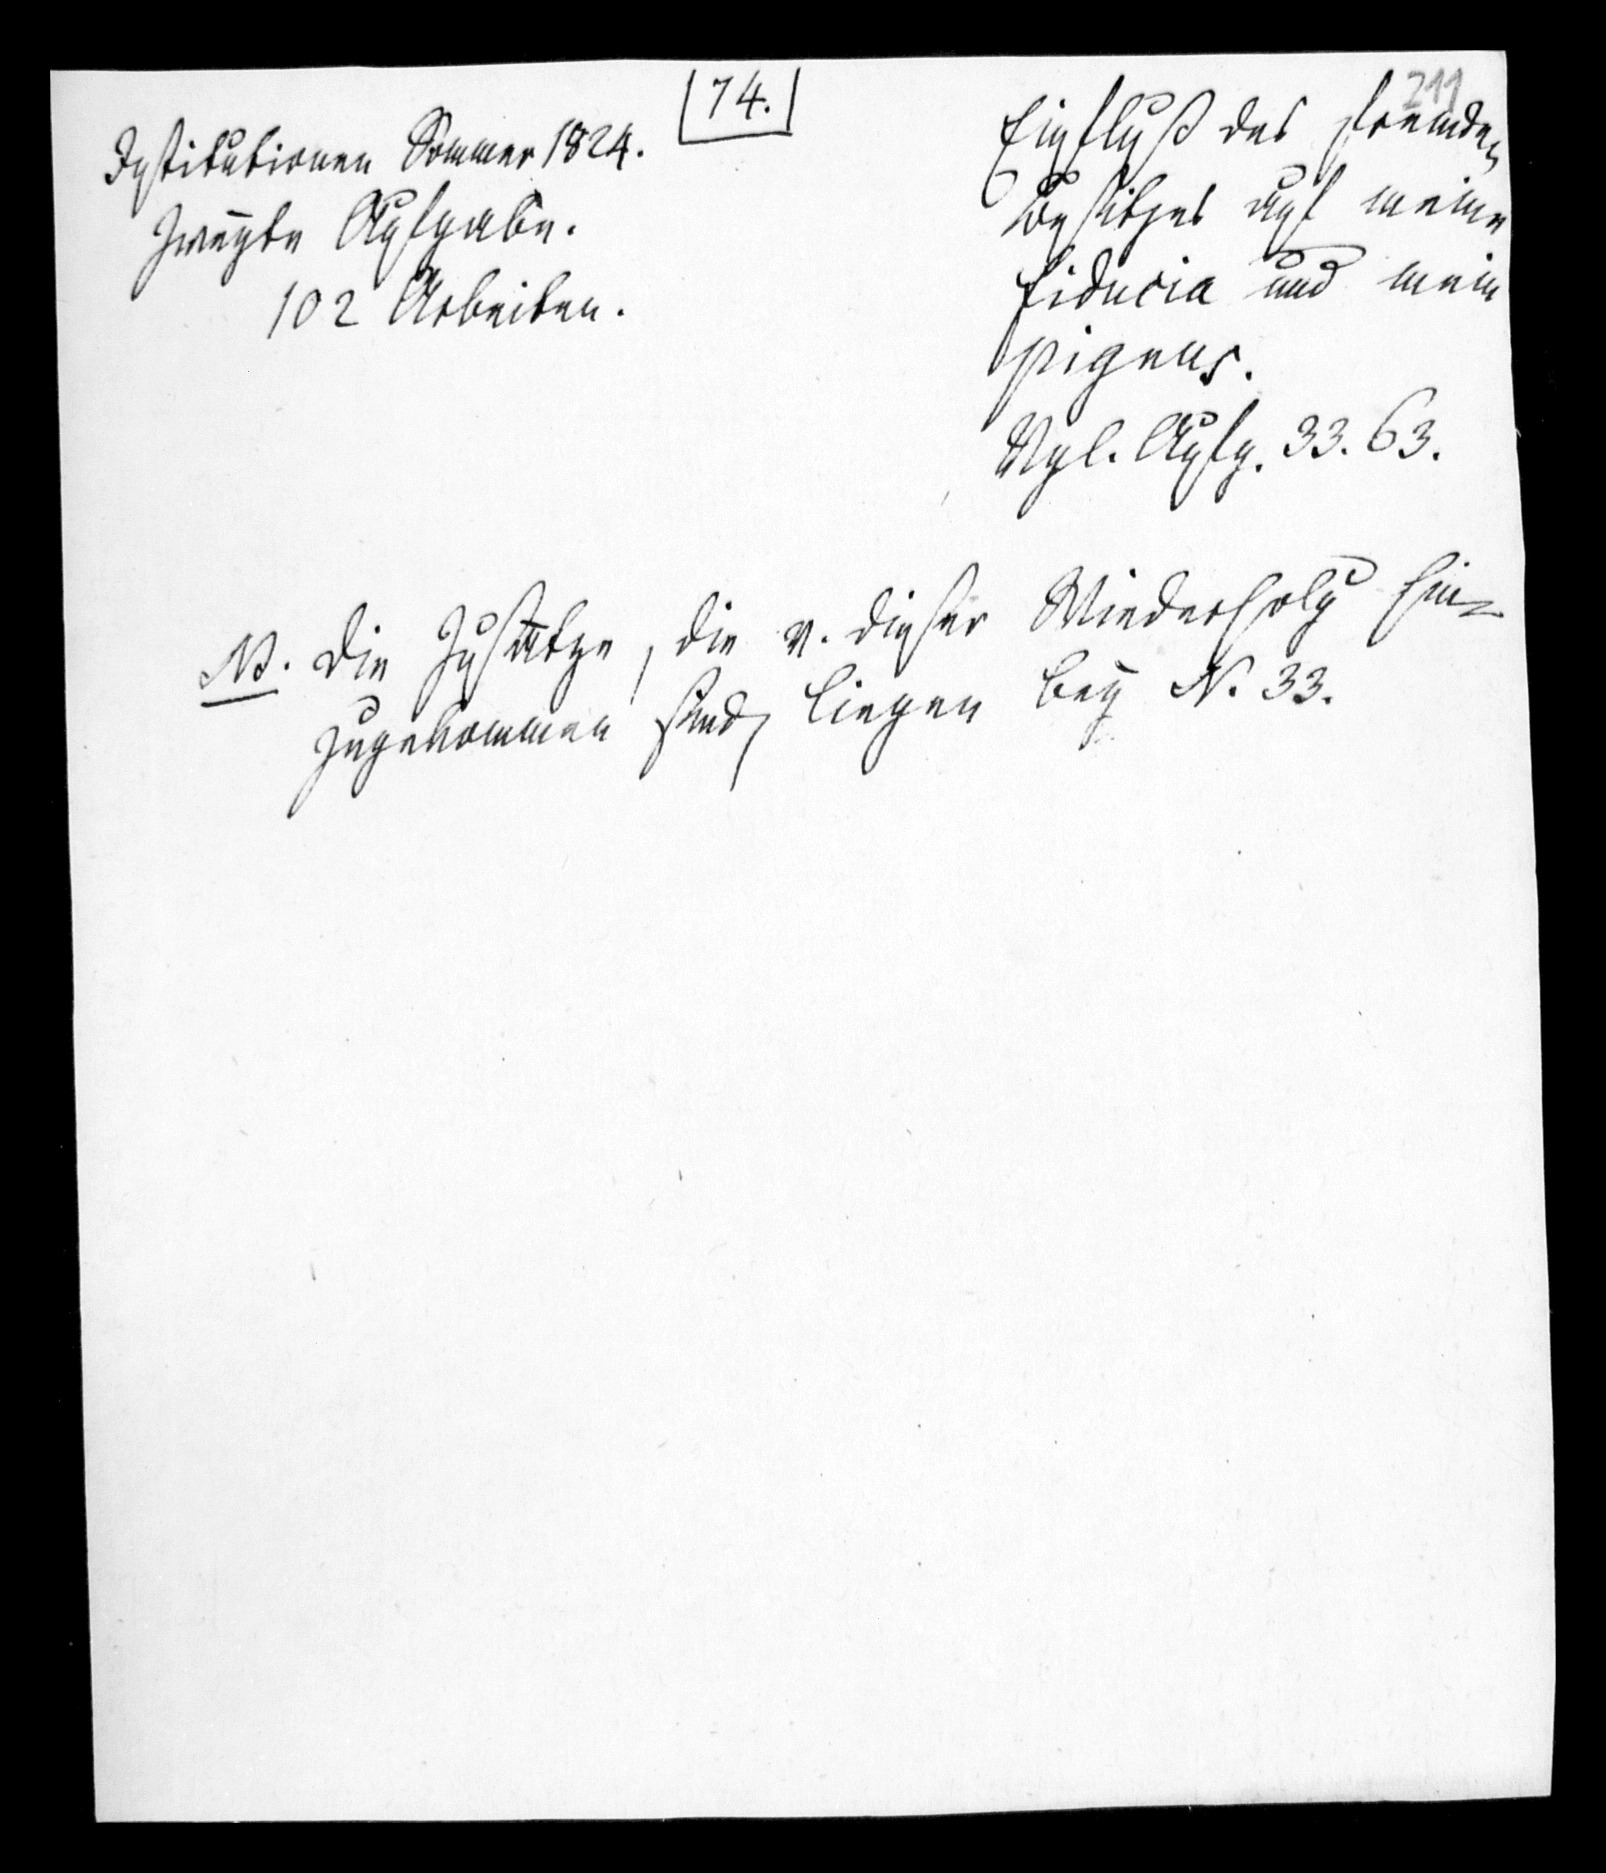 74.
211
Institutionen Sommer 1824.
Zweyte Aufgabe.
102 Arbeiten.
Einfluß des fremden
Besitzes auf meine
fiducia und mein
pignus.
Vgl. Aufg. 33. 63.
NB. Die Zusätze, die v. dieser Wiederholg hin-
zugekommen sind, liegen bey N. 33.